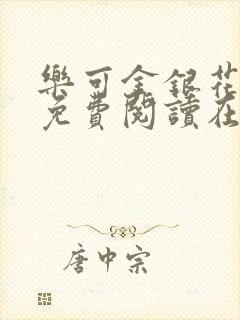 樂可金銀花
免費閱讀在
唐中宗